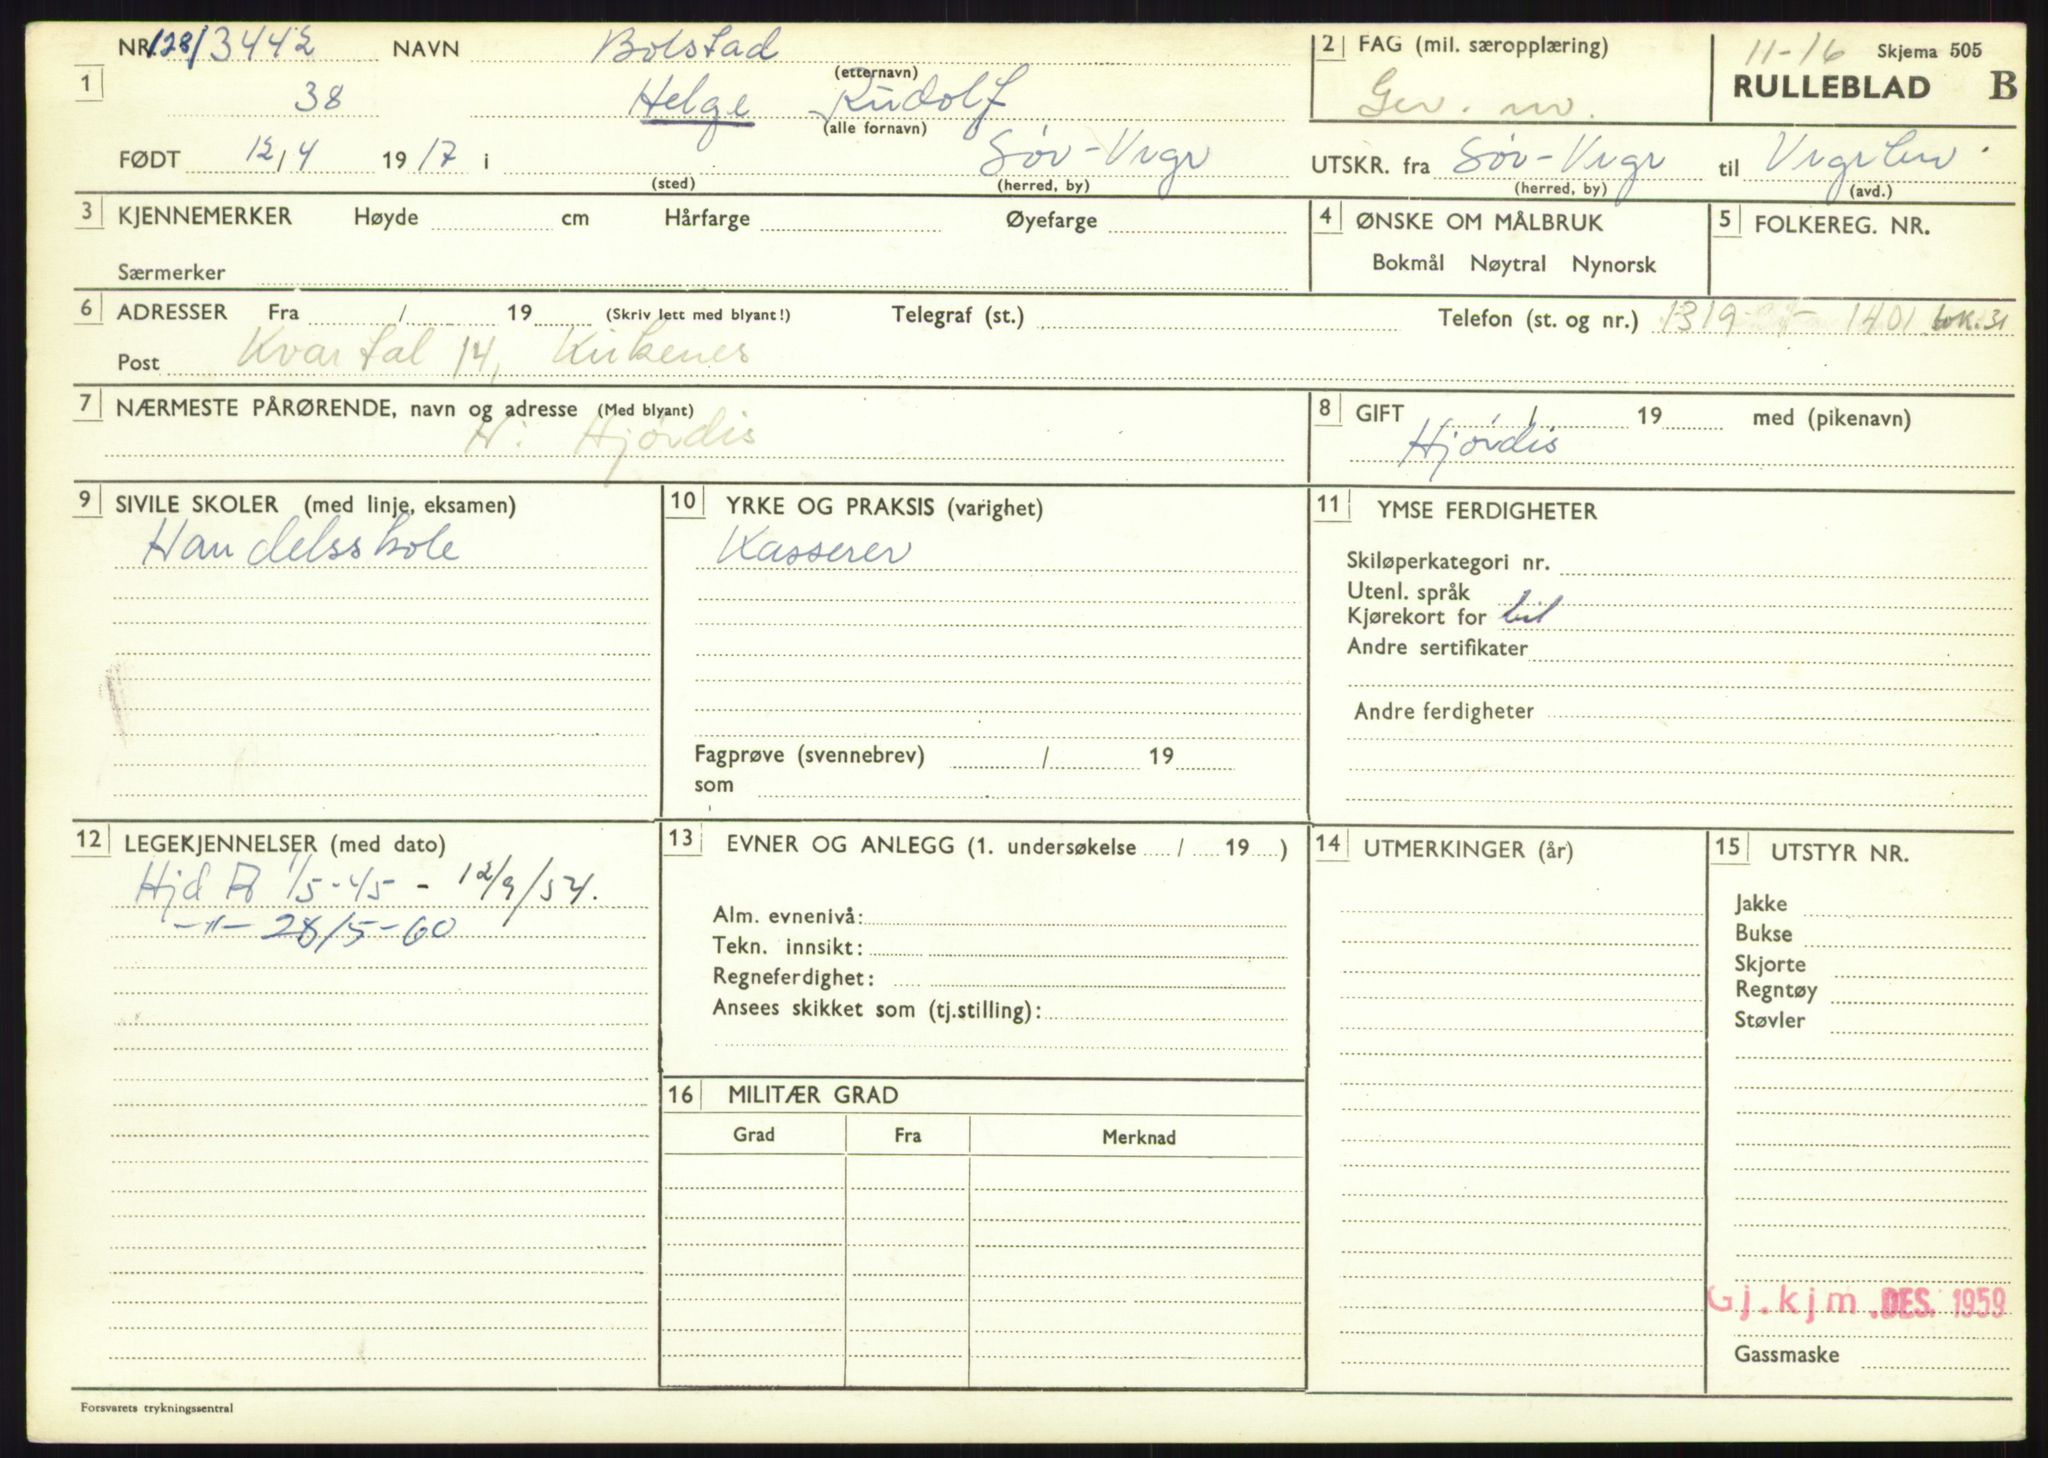 NR 128/3442 NAVN Bolstad 2 FAG (mil. særopplæring) 11-16 Skjema 505
(etternavn)
1 38 Helge Rudolf Gev. m. RULLEBLAD B
(alle fornavn)
FØDT 12/4 1917 i Sør-Vrgr UTSKR. fra Sør-Vrgr til
(sted) (herred, by) (herred, by) (avd.)
3 KJENNEMERKER Høyde cm Hårfarge Øyefarge 4 ØNSKE OM MÅLBRUK 5 FOLKEREG. NR.
Særmerker Bokmål Nøytral Nynorsk
6 ADRESSER Fra / 19 (Skriv lett med blyant!) Telegraf (st.) Telefon (st. og nr.) 1319 - 1401 lok. 31
Post Kvartal 14, Kirkenes
7 NÆRMESTE PÅRØRENDE, navn og adresse (Med blyant) 8 GIFT / 19 med (pikenavn)
H: Hjørdis Hjørdis
9 SIVILE SKOLER (med linje, eksamen) 10 YRKE OG PRAKSIS (varighet) 11 YMSE FERDIGHETER
Handelsskole Kasserer
Skiløperkategori nr.
Utenl. språk
Kjørekort for bil
Andre sertifikater
Andre ferdigheter
Fagprøve (svennebrev) / 19
som
12 LEGEKJENNELSER (med dato) 13 EVNER OG ANLEGG (1. undersøkelse / 19 ) 14 UTMERKINGER (år) 15 UTSTYR NR.
Hjd 1/5-45 - 12/9/54.
-"- 28/5-60
Alm. evnenivå:
Tekn. innsikt:
Regneferdighet:
Ansees skikket som (tj.stilling):
Jakke
Bukse
Skjorte
Regntøy
Støvler
16 MILITÆR GRAD
Grad Fra Merknad
Gj.kjm .DES. 1959
Gassmaske
Forsvarets trykningssentral